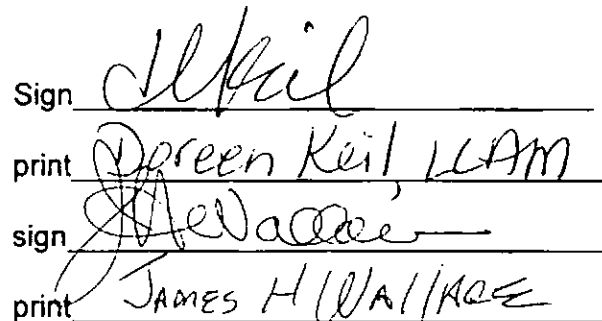 Sign
print Doreen Keil, LCAM
sign
print James H Wallace